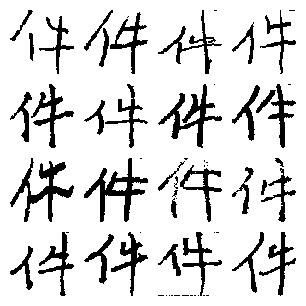 件件件件
件件件件
件件件件
件件件件